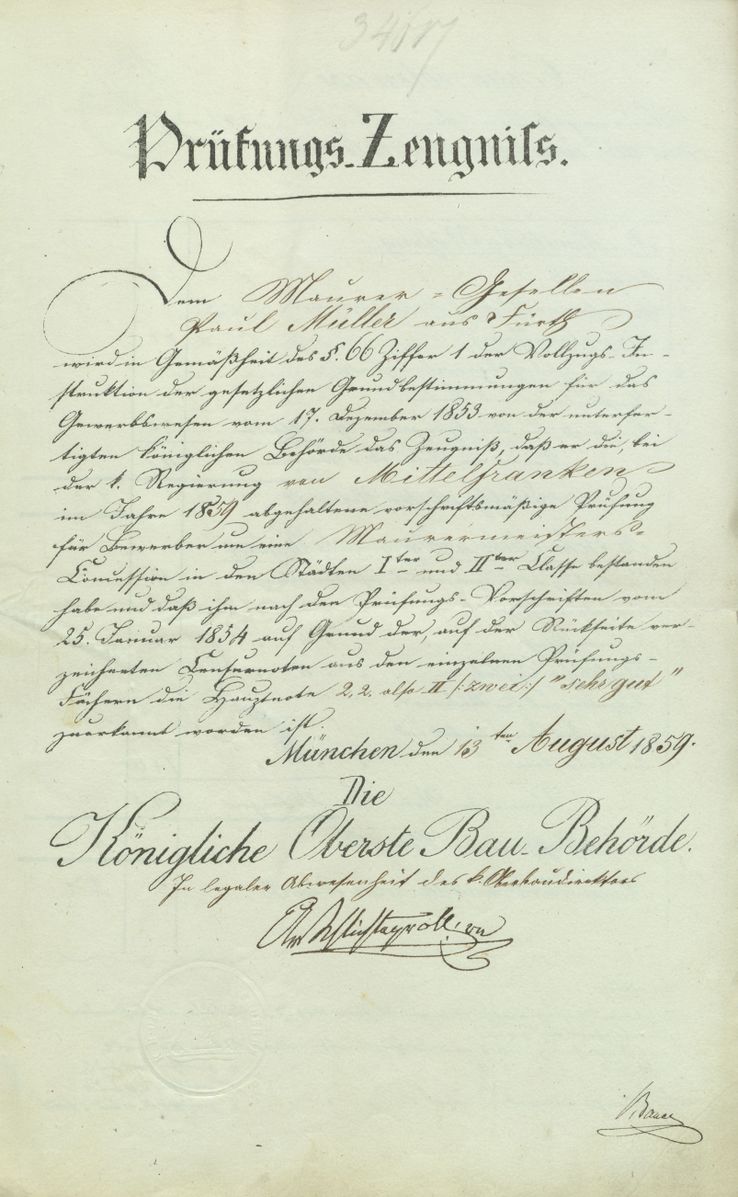 Prüfungs-Zeugniss.
Dem Maurer-Gesellen
Paul Müller aus Fürth
wird in Gemäßheit des §. 66 Ziffer 1 der Vollzugs-In-
struktion der gesetzlichen Grundbestimmungen für das
Gewerbswesen vom 17. Dezember 1853 von der unterfer-
tigten königlichen Behörde das Zeugniß, daß er die, bei
der k. Regierung von Mittelfranken
im Jahre 1859 abgehaltene vorschriftsmäßige Prüfung
für Bewerber um eine Maurermeisters-
Concession in den Städten I ter und II ter Classe bestanden
habe und daß ihm nach den Prüfungs-Vorschriften vom
25. Januar 1854 auf Grund der, auf der Rückseite ver-
zeichneten Censurnoten aus den einzelnen Prüfungs-
Fächern die Hauptnote 2,2. also II /:zwei:/ "sehr gut"
zuerkannt worden ist.
München den 13 ten August 1859.
Die
Königliche Oberste Bau-Behörde.
In legaler Abwesenheit des k. Oberbaudirektors